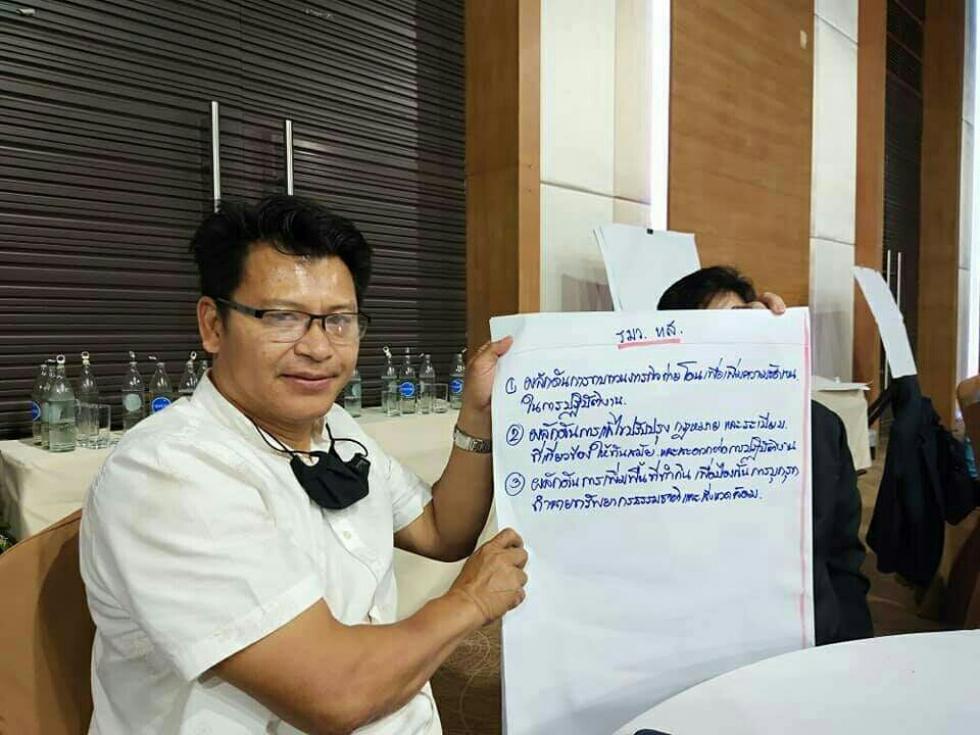 รมว. ทส.
① ผลักดันการทบทวนภารกิจถ่ายโอน เพื่อเพิ่มความชัดเจน
ในการปฏิบัติงาน.
② ผลักดันการแก้ไขปรับปรุง กฎหมาย และระเบียบ
ที่เกี่ยวข้อง ให้ทันสมัย และสะดวกต่อการปฏิบัติงาน
③ ผลักดันการเพิ่มพื้นที่ทำกิน เพื่อป้องกันการบุกรุก
ทำลายทรัพยากรธรรมชาติและสิ่งแวดล้อม.